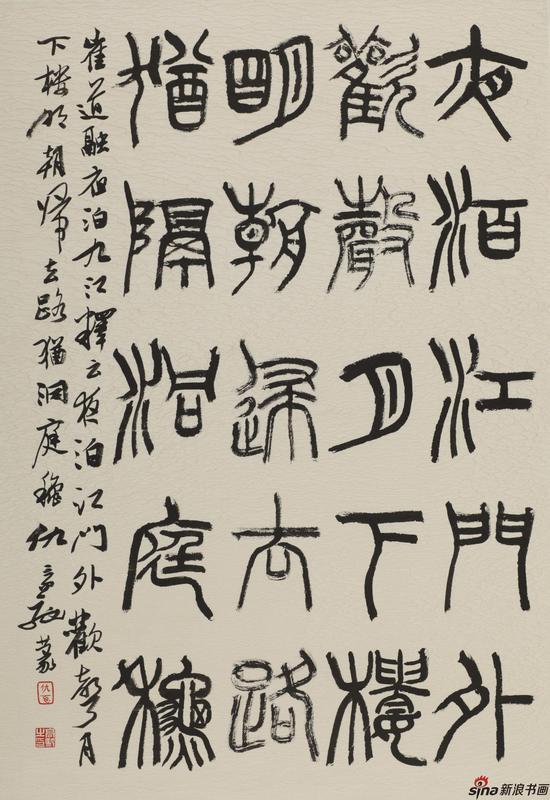 夜泊江門外
歡聲月下樓
明朝歸去路
猶隔洞庭穐
崔道融夜泊九江釋云夜泊江門外歡聲月
下樓明朝歸去路猶洞庭穐仇高馳篆
sina新浪书画